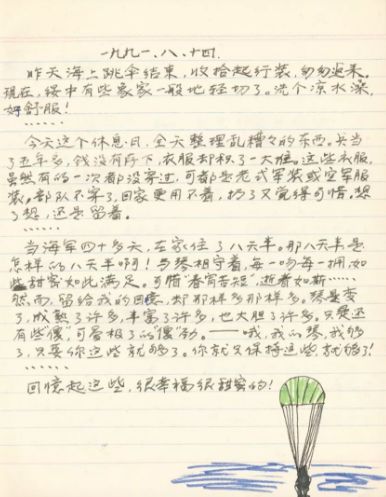 一九九一.八.十四.
昨天海上跳伞结束，收拾起行装，匆匆返来。
现在，绥中有些象家一般地轻切了。洗个凉水澡，
好舒服！
……
今天这个休息日，全天整理乱糟々的东西。兵当
了五年多，钱没有存下，衣服却积了一大堆。这些衣服，
虽然有的一次都没穿过，可都是老式军装或空军服
装。部队不穿了，回家更用不着，扔了又觉得可惜，想
了想，还是留着。
……
当海军四十多天，在家住了八天半。那八天半是
怎样的八天半啊！与琴相守着，每一吻每一拥，如
甜蜜如此满足。可惜"春宵苦短"，逝者如斯……
然而，留给我的回忆，却那样多那样多。琴是变
了，成熟了许多，丰富了许多，也大胆了许多。只是还
有些"傻"，可爱极了的"傻"劲。——哦，我的琴，我够
了，只要你这些就够了。你就只保持这些，就够了！
……
回憶起这些，很幸福很甜蜜的！